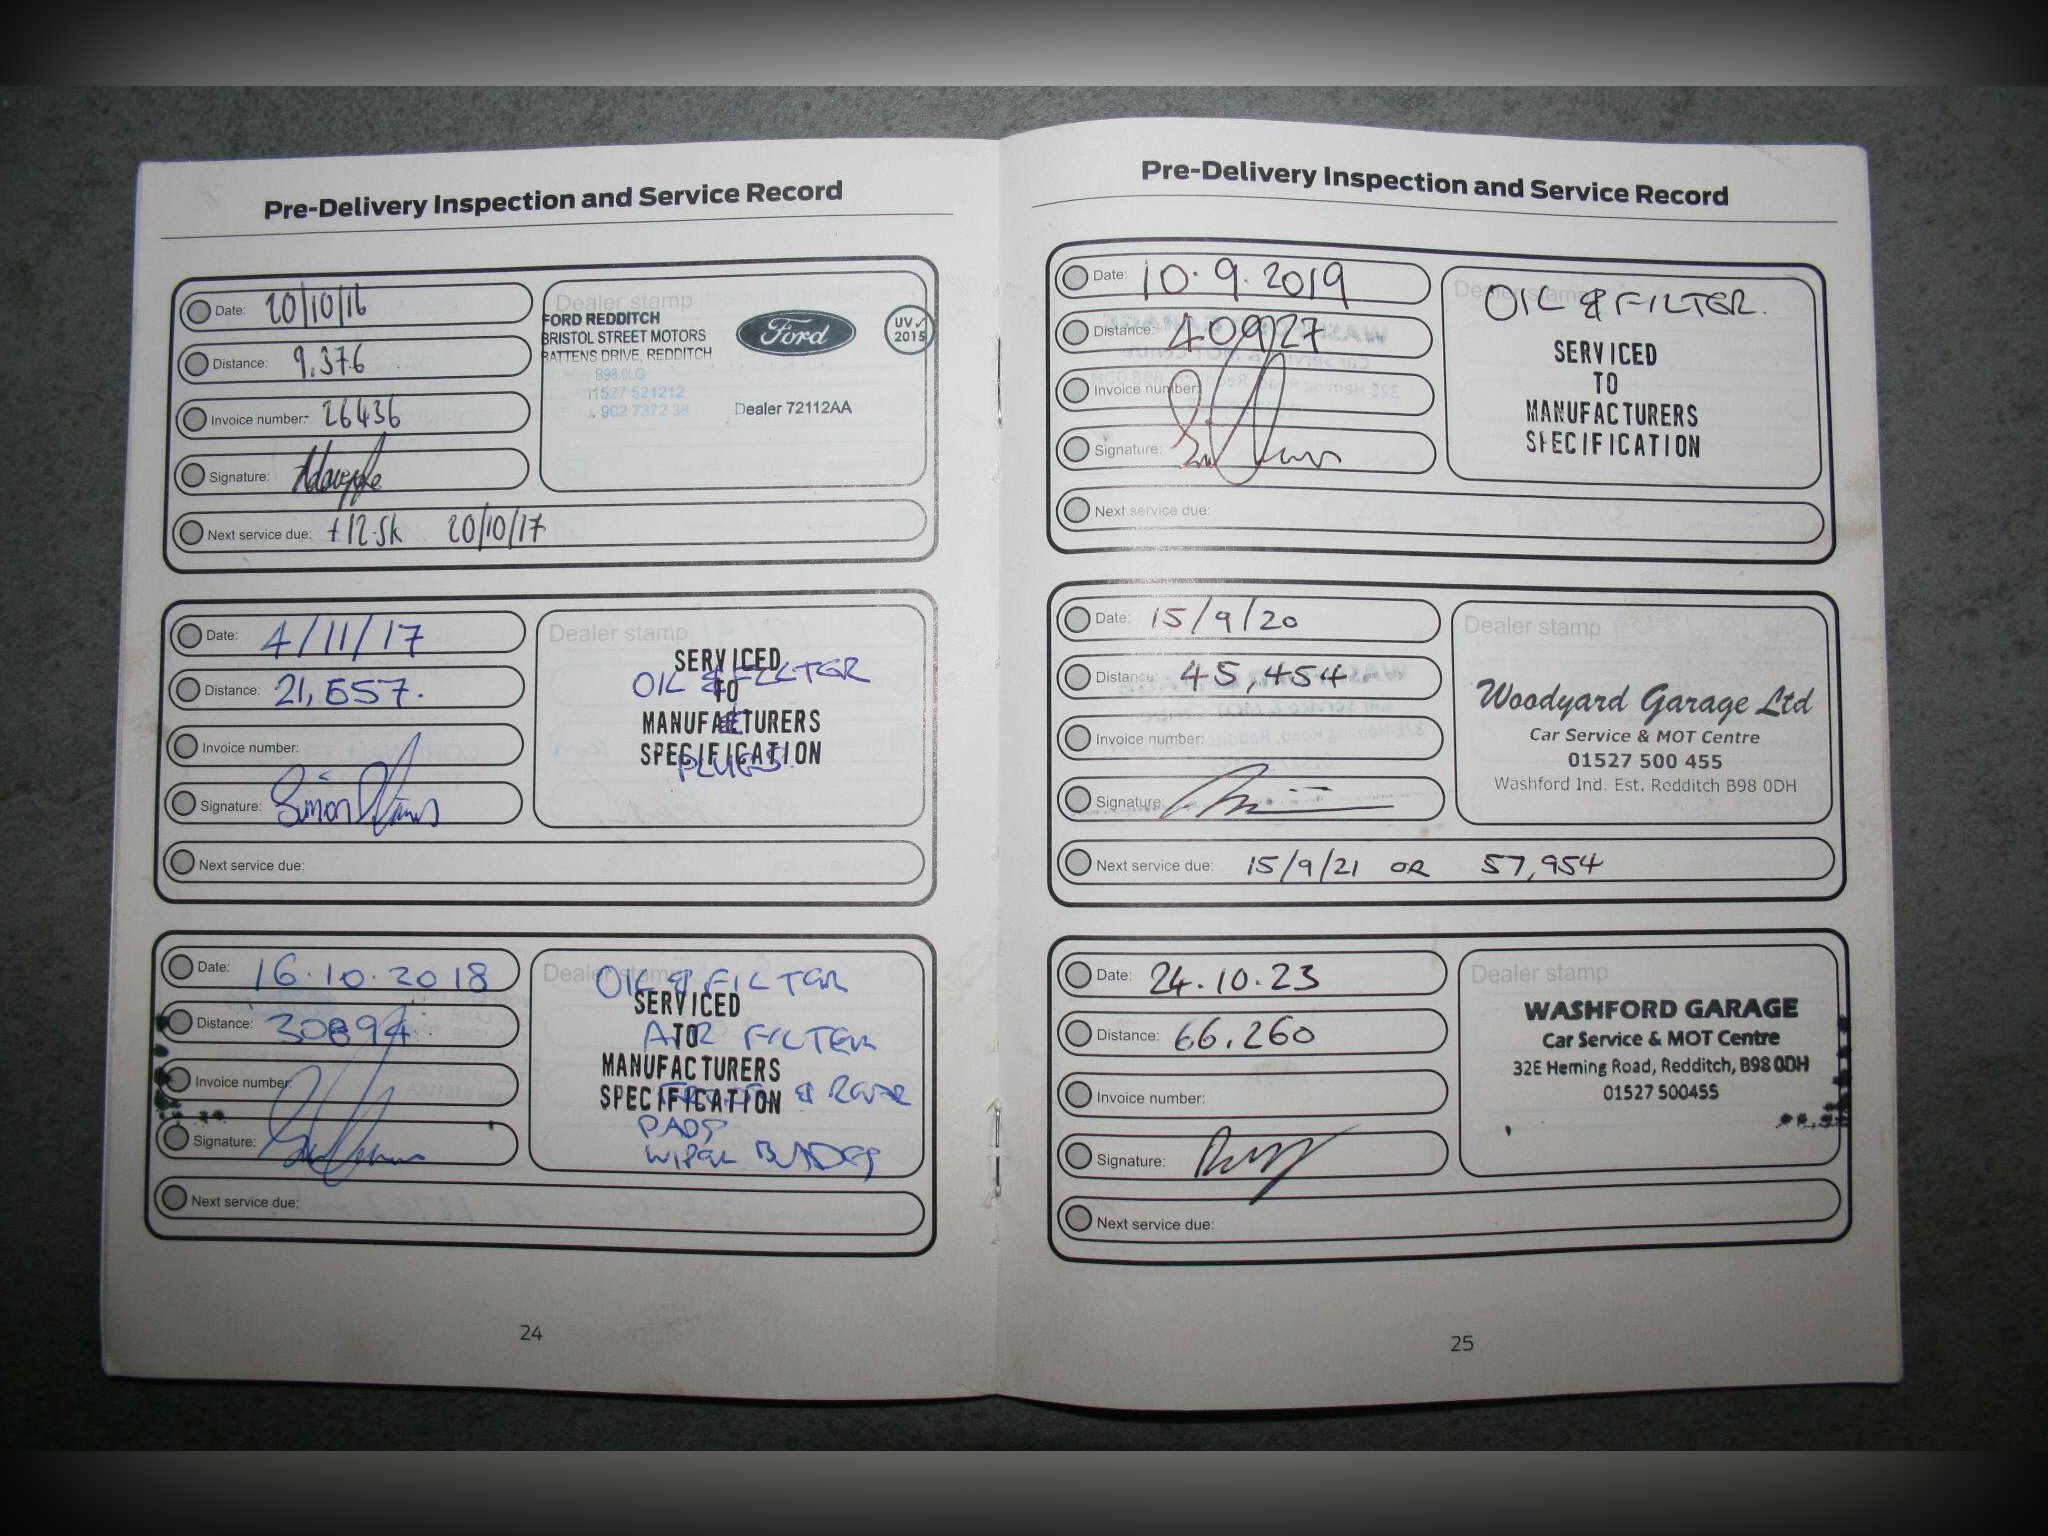 Pre-Delivery Inspection and Service Record
Date: 20/10/16
Distance: 9,376
Invoice number: 26436
Signature:
Next service due: +12.5k 20/10/17
Dealer stamp
FORD REDDITCH
BRISTOL STREET MOTORS
BATTENS DRIVE, REDDITCH
B98 0LG
01527 521212
902 7372 38
Ford
UV✓
2015
Dealer 72112AA
Date: 4/11/17
Distance: 21,657.
Invoice number:
Signature: Simon
Next service due:
Dealer stamp
SERVICED
OIL & FILTER
TO
MANUFACTURERS
&
SPECIFICATION
PLUGS.
Date: 16.10.2018
Distance: 30894
Invoice number:
Signature:
Next service due:
Dealer stamp
OIL & FILTER
SERVICED
AIR FILTER
TO
MANUFACTURERS
SPECIFICATION
& REAR
PADS
WIPER BLADES
24
Pre-Delivery Inspection and Service Record
Date: 10.9.2019
Distance: 40927
Invoice number:
Signature:
Next service due:
Dealer stamp
OIL & FILTER.
SERVICED
TO
MANUFACTURERS
SPECIFICATION
Date: 15/9/20
Distance: 45,454
Invoice number:
Signature:
Next service due: 15/9/21 OR 57,954
Dealer stamp
Woodyard Garage Ltd
Car Service & MOT Centre
01527 500 455
Washford Ind. Est. Redditch B98 0DH
Date: 24.10.23
Distance: 66,260
Invoice number:
Signature:
Next service due:
Dealer stamp
WASHFORD GARAGE
Car Service & MOT Centre
32E Heming Road, Redditch, B98 0DH
01527 500455
25